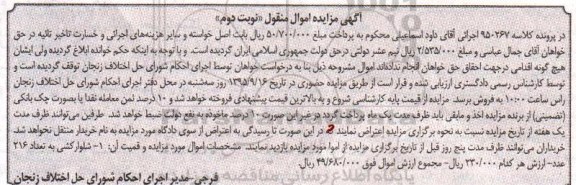 آگهی مزایده اموال منقول «نوبت دوم»
در پرونده کلاسه ۹۵۰۲۶۷ اجرائی آقای داود اسماعیلی محکوم به پرداخت مبلغ ۵۰/۷۰۰/۰۰۰ ریال بابت اصل خواسته و سایر هزینه‌های اجرائی و خسارت تاخیر تادیه در حق
خواهان آقای جمال عباسی و مبلغ ۲/۵۳۵/۰۰۰ ریال نیم عشر دولتی درحق دولت جمهوری اسلامی ایران گردیده است. و با توجه به اینکه حکم خوانده ابلاغ گردیده ولی ایشان
هیچ گونه اقدامی درجهت احقاق حق خواهان انجام نداده‌اند اموال مشروحه ذیل بنا به درخواست خواهان توسط اجرای احکام شورای حل اختلاف زنجان توقیف گردیده است و
توسط کارشناس رسمی دادگستری ارزیابی شده و قرار است از طریق مزایده حضوری در تاریخ ۱۳۹۵/۹/۱۶ روز سه‌شنبه در محل دفتر اجرای احکام شورای حل اختلاف زنجان
راس ساعت ۱۰:۰۰ به فروش برسد. مزایده از قیمت پایه کارشناسی شروع و به بالاترین قیمت پیشنهادی فروخته خواهد شد و ۱۰ درصد ثمن معامله نقدا یا بصورت چک بانکی
(تضمینی) از برنده مزایده اخذ و مابقی باید ظرف مدت یک ماه پرداخت گردد در غیر این صورت ۱۰ درصد ماخوذه به نفع دولت ضبط خواهد شد. طرفین می‌توانند ظرف مدت
یک هفته از تاریخ مزایده نسبت به نحوه برگزاری مزایده اعتراض نمایند 2 در این صورت تا رسیدگی به اعتراض از سوی دادگاه مورد مزایده به نام خریدار منتقل نخواهد شد.
خریداران می‌توانند ظرف مدت پنج روز قبل از تاریخ برگزاری مزایده از اموال مورد مزایده بازدید نمایند. مشخصات اموال مورد مزایده و قیمت آن: ۱- شلوارکشی به تعداد ۲۱۶
عدد- ارزش هر کدام ۲۳۰/۰۰۰ ریال- مجموع ارزش اموال فوق ۴۹/۶۸۰/۰۰۰ ریال.
فرجی-مدیر اجرای احکام شورای حل اختلاف زنجان